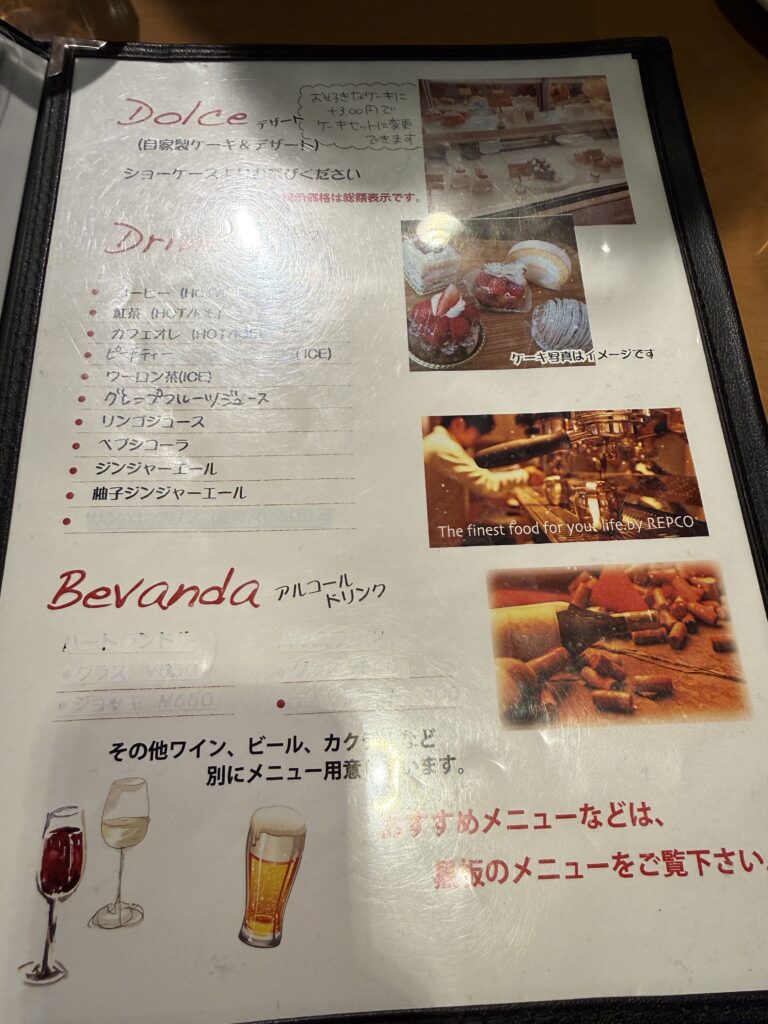 Dolce デザート
お好きなケーキに
+300円で
ケーキセットに変更
できます
(自家製ケーキ&デザート)
ショーケースよりお選びください
価格は総額表示です。
Drink
コーヒー (HOT/
紅茶 (HOT/ICE)
カフェオレ (HOT/ICE)
ピーチティー (ICE)
ウーロン茶(ICE)
グレープフルーツジュース
リンゴジュース
ペプシコーラ
ジンジャーエール
柚子ジンジャーエール
ケーキ写真はイメージです
The finest food for your life.by REPCO
Bevanda アルコール
ドリンク
ハートランド
グラス
ジョッキ ¥650
その他ワイン、ビール、カクテルなど
別にメニュー用意しています。
おすすめメニューなどは、
黒板のメニューをご覧下さい。